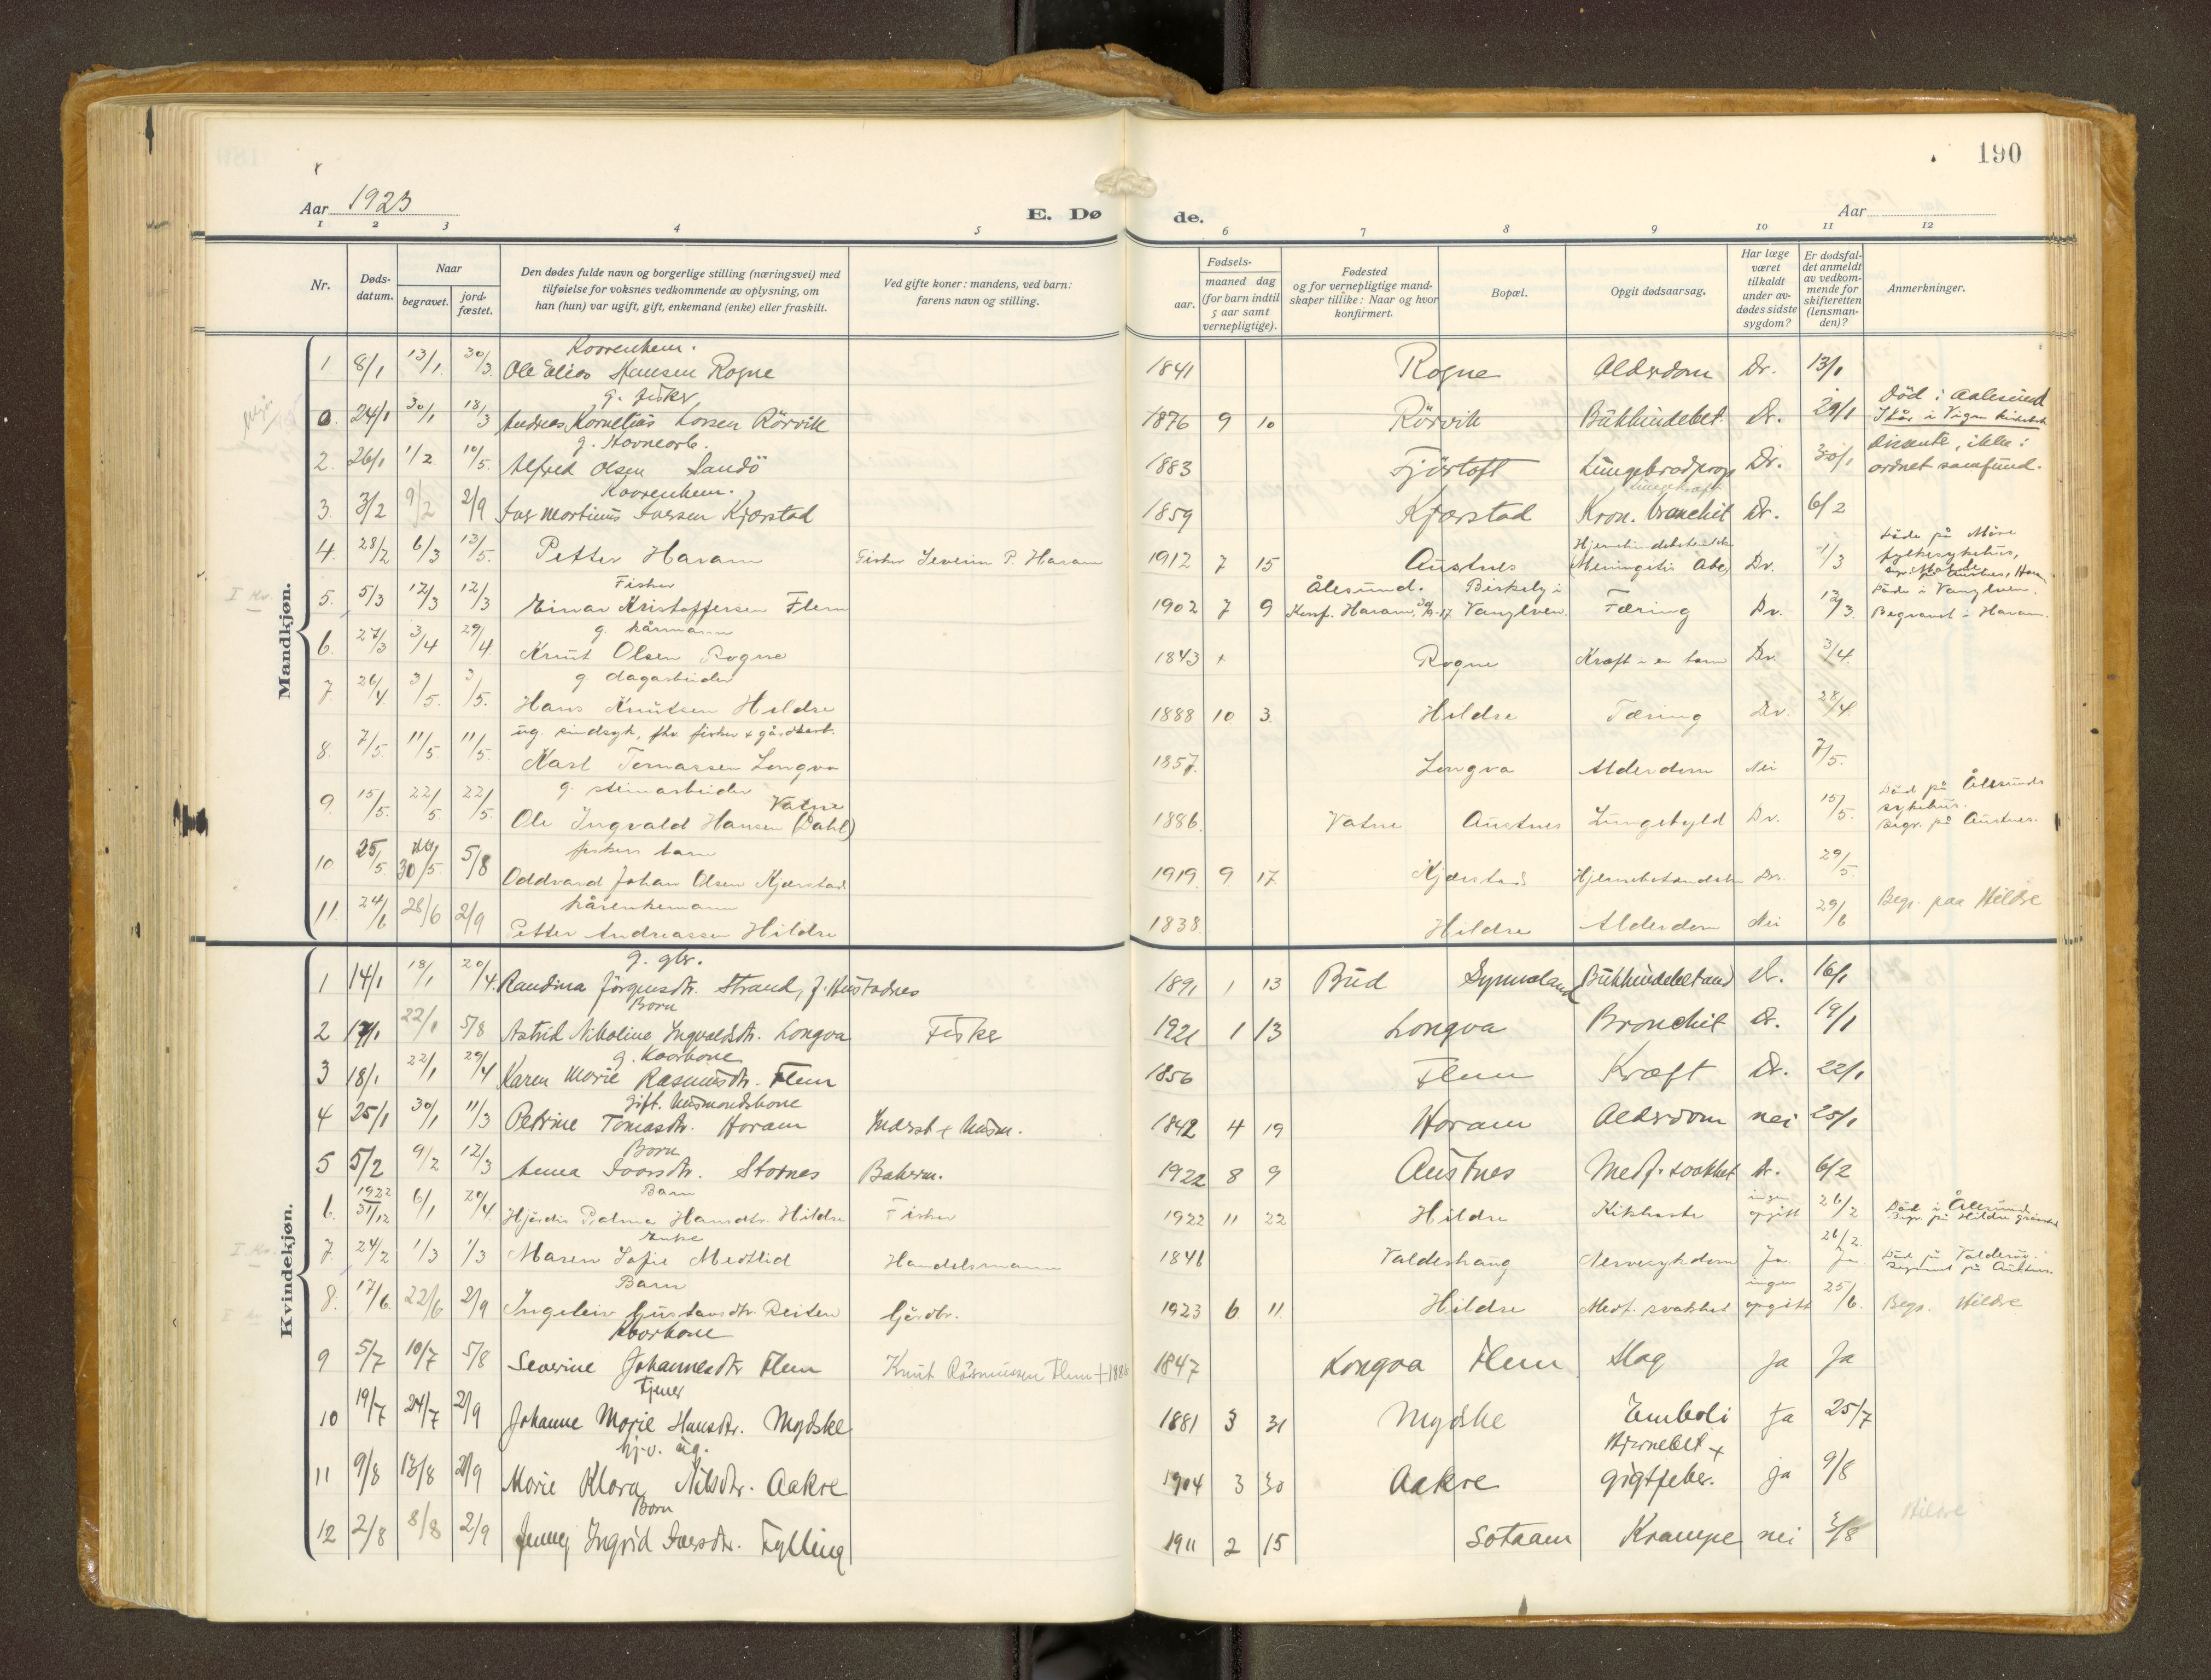 190
Aar 1923
E. Døde.
Aar
1 2 3 4 5 6 7 8 9 10 11 12
Nr.
Døds-datum.
Naar
begravet.
jord-fæstet.
Den dødes fulde navn og borgerlige stilling (næringsvei) med
tilføielse for voksnes vedkommende av oplysning, om
han (hun) var ugift, gift, enkemand (enke) eller fraskilt.
Ved gifte koner: mandens, ved barn:
farens navn og stilling.
Fødsels-
aar.
maaned dag
(for barn indtil
5 aar samt
vernepligtige).
Fødested
og for vernepligtige mand-
skaper tillike: Naar og hvor
konfirmert.
Bopæl.
Opgit dødsaarsag.
Har læge
været
tilkaldt
under av-
dødes sidste
sygdom?
Er dødsfal-
det anmeldt
av vedkom-
mende for
skifteretten
(lensman-
den)?
Anmerkninger.
Mandkjøn.
Kaarenkem.
1 8/1 13/1 30/3 Ole Elias Hansen Rogne 1841 Rogne Alderdom Dr. 13/1
g. fisker
0. 24/1 30/1 18/3 Andreas Kornelius Larsen Rörvik 1876 9 10 Rörvik Bukhindebet. Dr. 29/1 Död i Aalesund
g. Havnearb.
2. 26/1 1/2 10/5. Alfred Olsen Sandö 1883 Fjörtoft Dr. 30/1 Dissente, ikke i ordnet samfund.
Kaarenkem.
3. 3/2 9/2 2/9 Iver Martinus Iversen Kjærstad 1859 Kjærstad Kron. Bronchit Dr. 6/2
4. 28/2 6/3 13/5. Petter Haram Fisker Severin P. Haram 1912 7 15 Austnes Meningitis Dr. 1/3 Döde på Möre fylkesykehus,
Fisker
5. 5/3 12/3 12/3 Einar Kristoffersen Flem 1902 7 9 Ålesund. Konf. Haram, Vanylven. Tæring Dr. 12/3 Döde i Vanylven. Begravet i Haram.
g. kårmann
6. 27/3 3/4 29/4 Knut Olsen Rogne 1843 + Rogne Kræft i Dr. 3/4.
g. dagarbeider
7. 26/4 3/5. 3/5. Hans Knutsen Hildre 1888 10 3. Hildre Tæring Dr. 28/4
ug. sindsyk, fhv. fisker & gårdsarb.
8. 7/5. 11/5 11/5. Karl Tomassen Longva 1857. Longva Alderdom Nei 7/5.
g. steinarbeider
9. 15/5. 22/5 22/5. Ole Ingvald Hansen (Dahl) Vatne 1886. Vatne Austnes Lungebyld Dr. 15/5. Död på Ålesunds sykehus. Begr. på Austnes.
fiskers barn
10. 25/5. 30/5. 5/8 Oddvard Johan Olsen Kjærstad 1919. 9 17. Kjærstad Hjernebetændelse Dr. 29/5.
kårenkemann
11. 24/6 28/6 2/9 Petter Andreassen Hildre 1838. Hildre Alderdom Nei 29/6 Begr. paa Hildre
Kvindekjøn.
g. gbr.
1 14/1 18/1 20/4. Randina Jörgensdtr. Strand, f. Hustadnes 1891 1 13 Bud Synnaland Bukhindebetænd Dr. 16/1
Barn
2 17/1 22/1 5/8 Astrid Nikoline Ingvaldsdtr. Longva Fisker 1921 1 13 Longva Bronchit Dr. 19/1
g. Kaarkone
3 18/1 22/1 29/4 Karen Marie Rasmusdtr. Flem 1856 Flem Kræft Dr. 22/1
Gift. Husmandskone
4 25/1 30/1 11/3 Petrine Tomasdtr. Haram Inderst & Husm. 1842 4 19 Haram Alderdom nei 25/1
Barn
5 5/2 9/2 12/3 Anna Ivarsdtr. Stornes Bakerm. 1922 8 9 Austnes Medf. svakhet Dr. 6/2
Barn
6. 1922 31/12 6/1 20/4. Hjördis Palma Hansdtr. Hildre Fisker 1922 11 22 Hildre Kikhoste ingen opgitt 26/2 Död i Ålesund. Begr. på Hildre gravsted
Enke
7. 24/2 1/3 1/3 Maren Sofie Medtlid Handelsmann 1846 Valdershaug Nervesykdom Ja 26/2. Ja Död på Valderöy. Begravet på Austnes.
Barn
8. 17/6. 22/6 2/9 Ingeleiv Gustavsdtr. Reiten Gårdbr. 1923 6 11. Hildre Medf. svakhet ingen opgitt 25/6. Begr. Hildre
Kaarkone
9 5/7 10/7 5/8 Severine Johannesdtr Flem Knut Rasmussen Flem +1886 1847 Longva Flem Slag ja ja
Tjener
10 19/7 24/7 2/9 Johanne Marie Hansdtr. Mydske 1881 3 31 Mydske Emboli Ja 25/7
hj.v. ug.
11 9/8 13/8 2/9 Marie Klara Nilsdtr. Aakre 1904 3 30 Aakre Hjernebet + gigtfeber. ja 9/8
Barn
12 2/8 8/8 2/9 Jenny Ingrid Iversdtr. Fylling 1911 2 15 Sotaam Krampe nei 3/8 Hildre